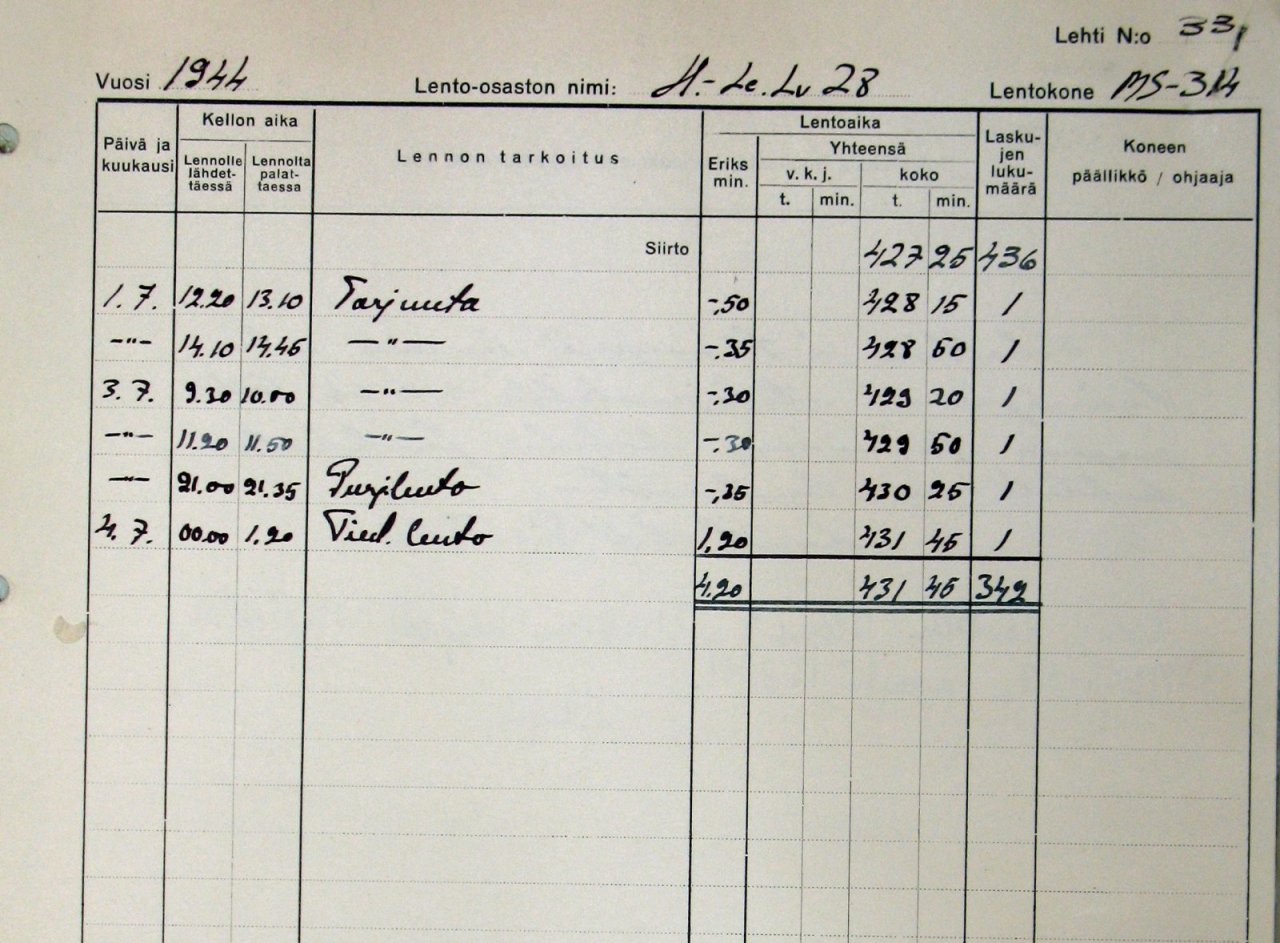 Lehti N:o 33,
Vuosi 1944 Lento-osaston nimi: H.-Le.Lv 28 Lentokone MS-314
Päivä ja kuukausi Kellon aika Lennolle lähdettäessä Lennolta palattaessa Lennon tarkoitus Lentoaika Eriks min. Yhteensä v. k. j. t. min. koko t. min. Laskujen lukumäärä Koneen päällikkö / ohjaaja
Siirto 427 25 436
1. 7. 12.20 13.10 Torjunta -.50 428 15 1
-"- 14.10 14.45 -"- -.35 428 50 1
3. 7. 9.30 10.00 -"- -.30 429 20 1
-"- 11.20 11.50 -"- -.30 429 50 1
-"- 21.00 21.35 -.35 430 25 1
4. 7. 00.00 1.20 Tied. lento 1.20 431 45 1
4.20 431 45 342